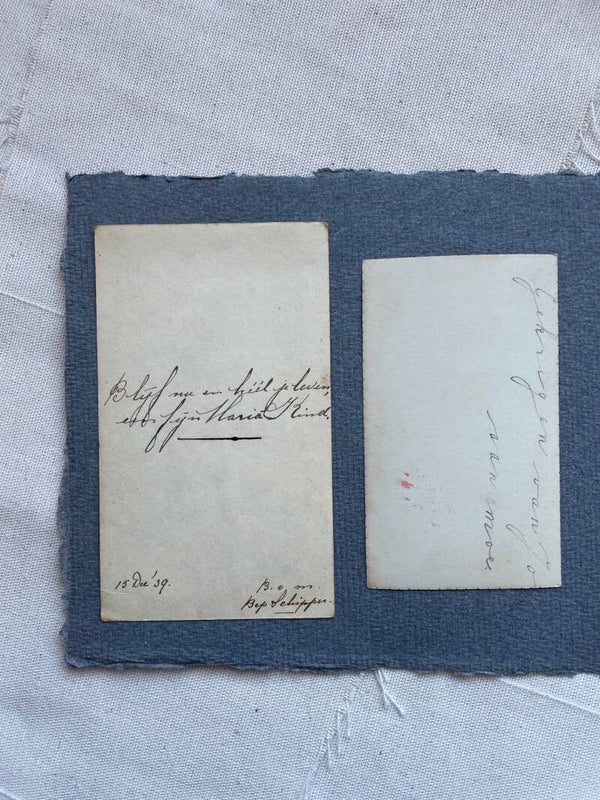 Blijf nu en héél je leven,
een fijn Maria Kind.
15 Dec '39.
B. v. m.
Bep Schipper.
Gekregen van
van moe